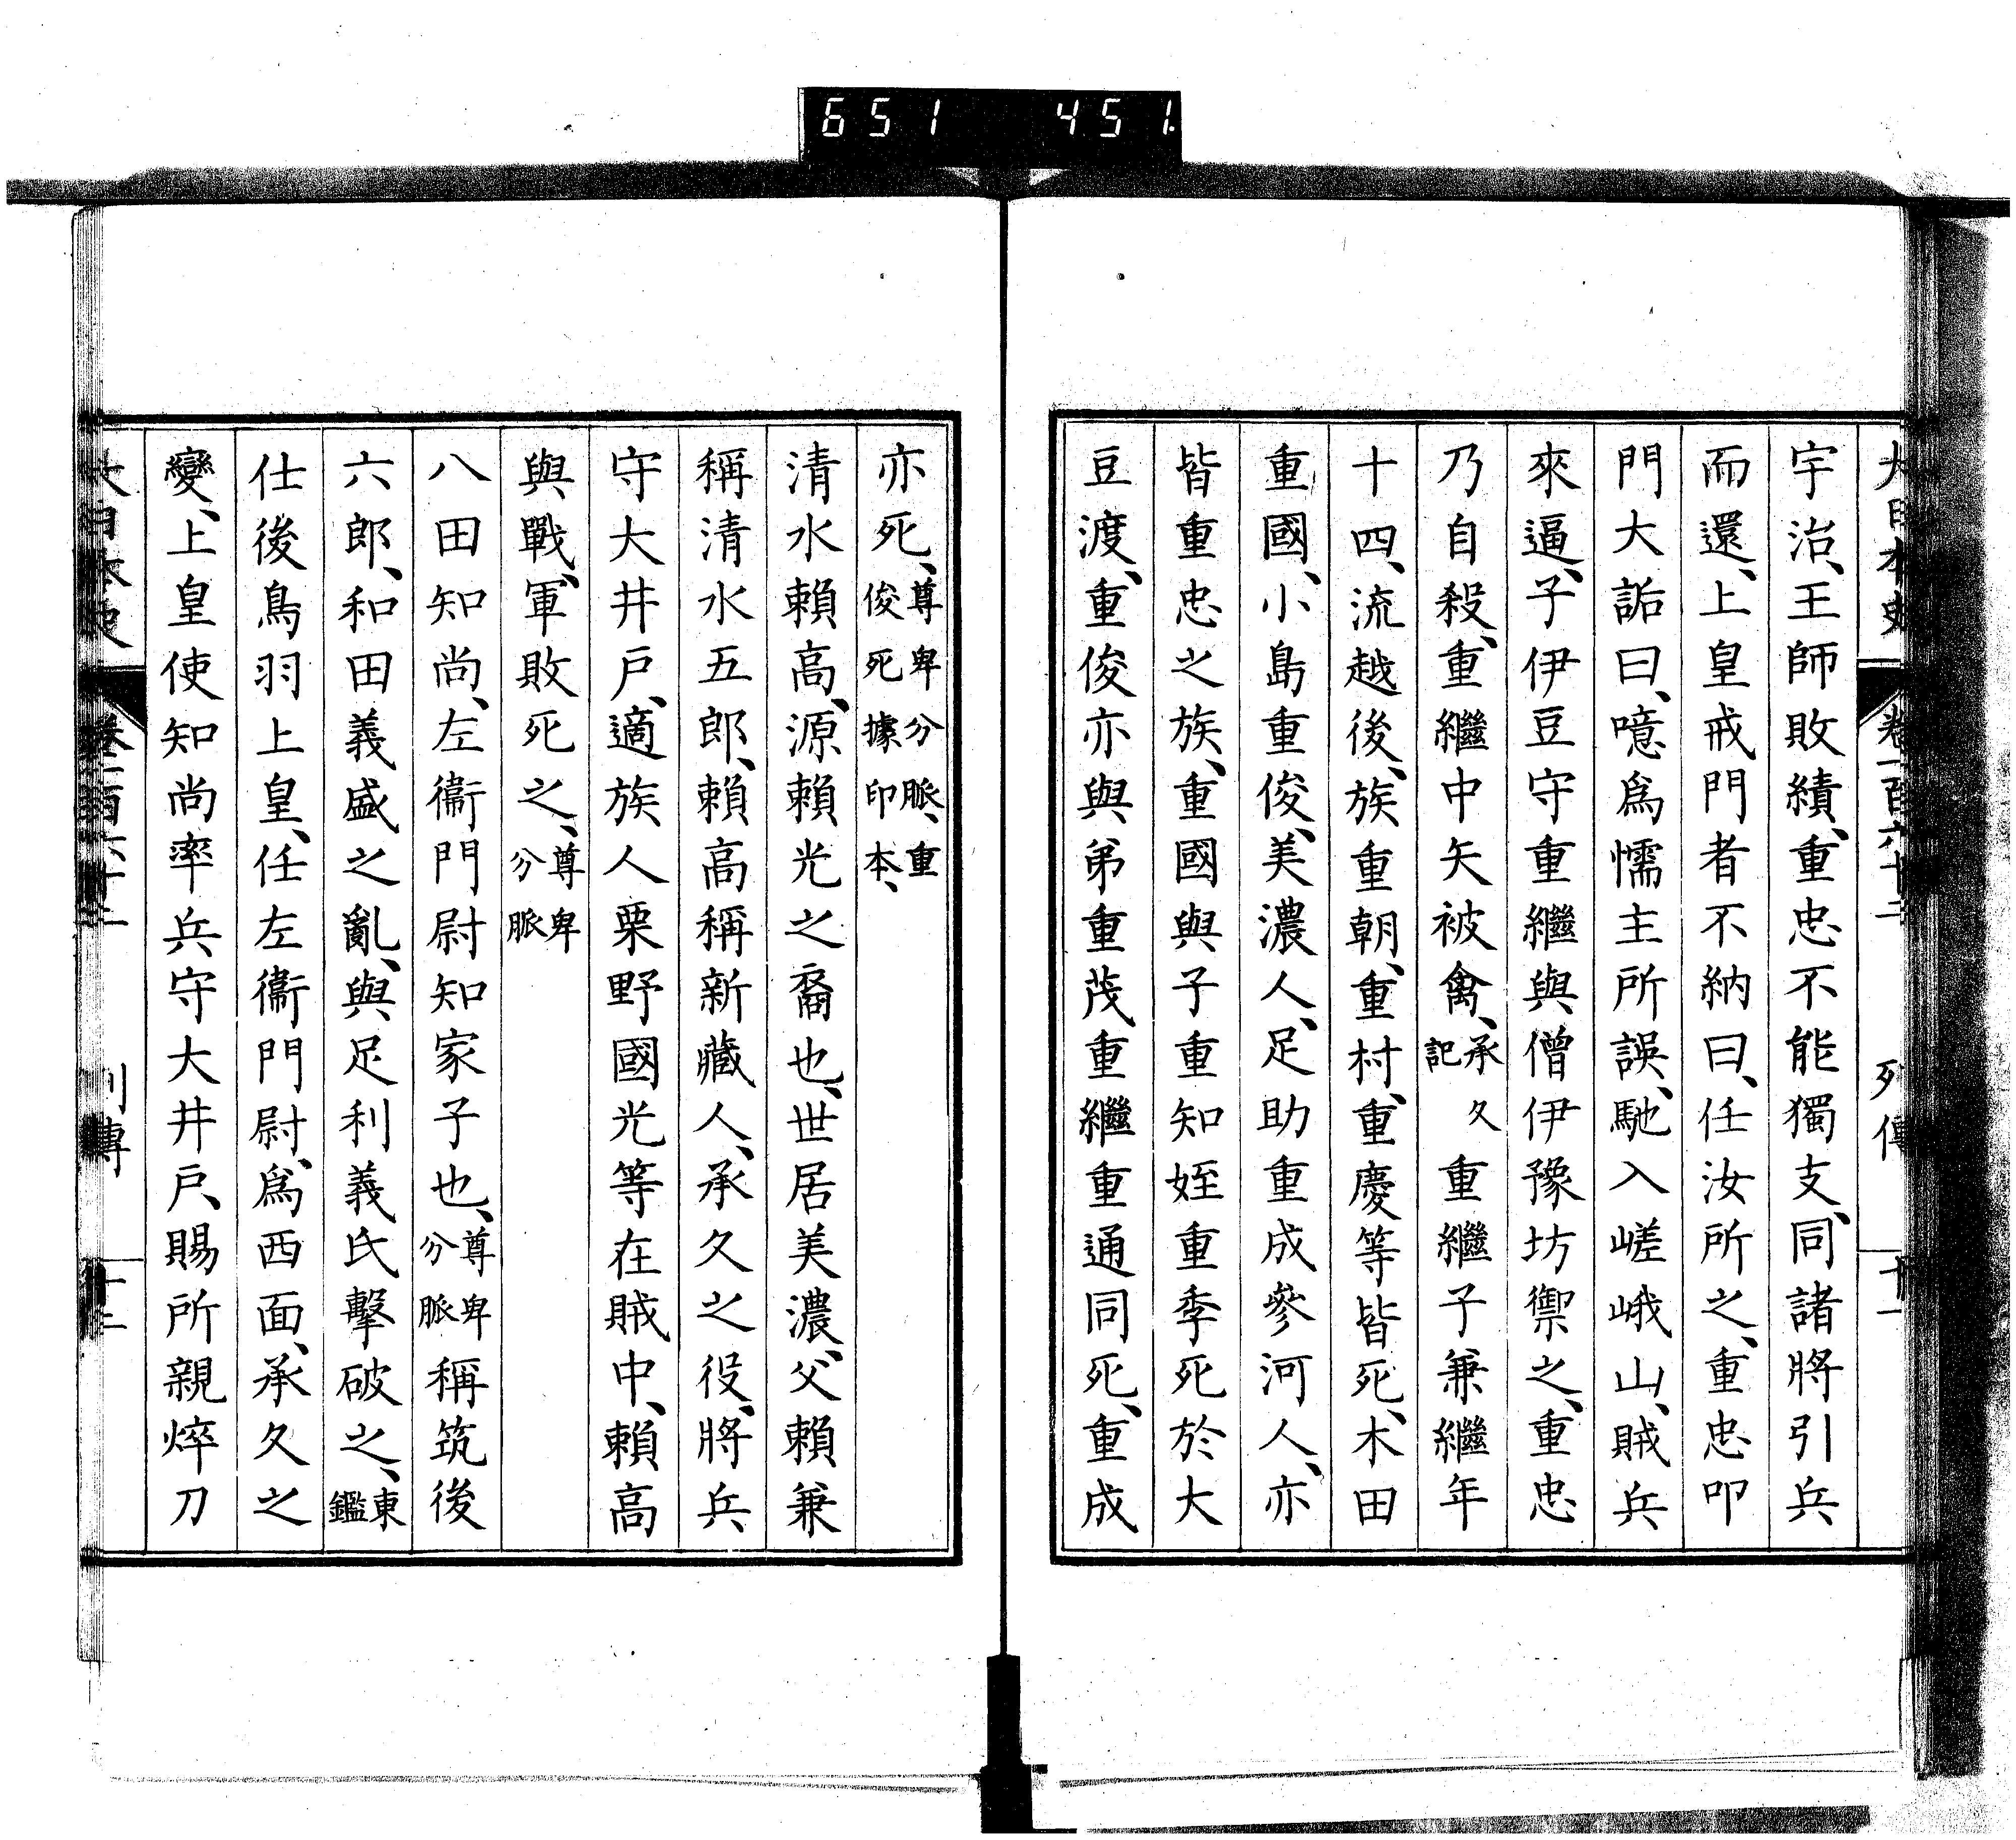 651 451
大日本史 卷一百六十二 列傳 十一
宇治、王師敗績、重忠不能獨支、同諸將引兵
而還、上皇戒門者不納曰、任汝所之、重忠叩
門大詬曰、噫爲懦主所誤、馳入嵯峨山、賊兵
來逼、子伊豆守重繼與僧伊豫坊禦之、重忠
乃自殺、重繼中矢被禽、承久記 重繼子兼繼年
十四、流越後、族重朝、重村、重慶等皆死、木田
重國、小島重俊、美濃人、足助重成參河人、亦
皆重忠之族、重國與子重知姪重季死於大
豆渡、重俊亦與弟重茂重繼重通同死、重成
亦死、尊卑分脈、重俊死據印本、
清水賴高、源賴光之裔也、世居美濃、父賴兼
稱清水五郎、賴高稱新藏人、承久之役、將兵
守大井戶、適族人栗野國光等在賊中、賴高
與戰、軍敗死之、尊卑分脈
八田知尚、左衞門尉知家子也、尊卑分脈 稱筑後
六郎、和田義盛之亂、與足利義氏擊破之、東鑑
仕後鳥羽上皇、任左衞門尉、爲西面、承久之
變、上皇使知尚率兵守大井戶、賜所親焠刀